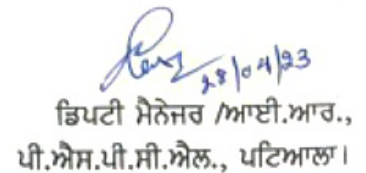 28/04/23
ਡਿਪਟੀ ਮੈਨੇਜਰ /ਆਈ.ਆਰ.,
ਪੀ.ਐਸ.ਪੀ.ਸੀ.ਐਲ., ਪਟਿਆਲਾ।